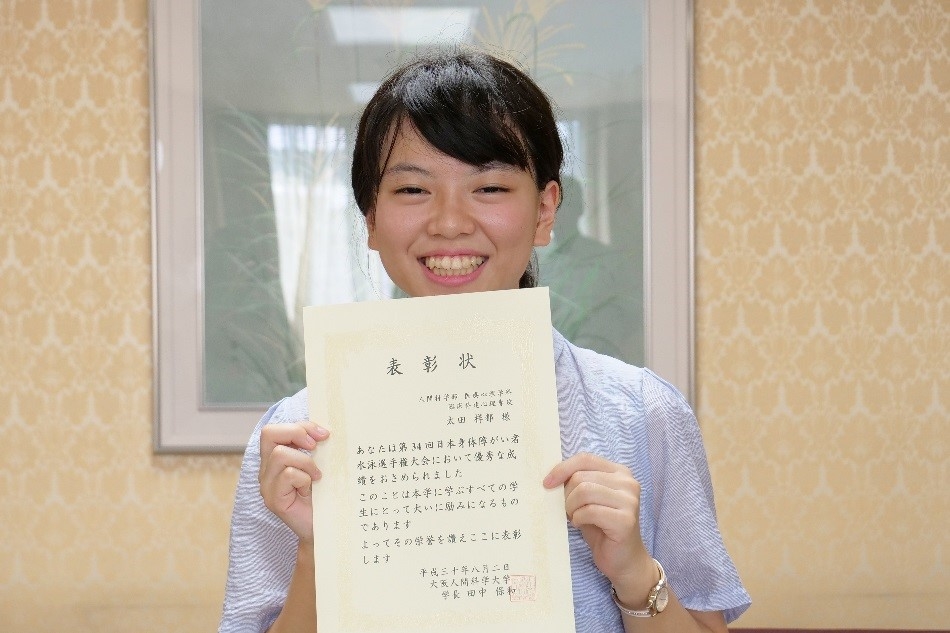 表彰状
人間科学部 医療心理学科
臨床発達心理専攻
太田 祥都 様
あなたは第34回日本身体障がい者
水泳選手権大会において優秀な成
績をおさめられました
このことは本学に学ぶすべての学
生にとって大いに励みになるもの
であります
よってその栄誉を讃えここに表彰
します
平成三十年八月二日
大阪人間科学大学
学長 田中 保和